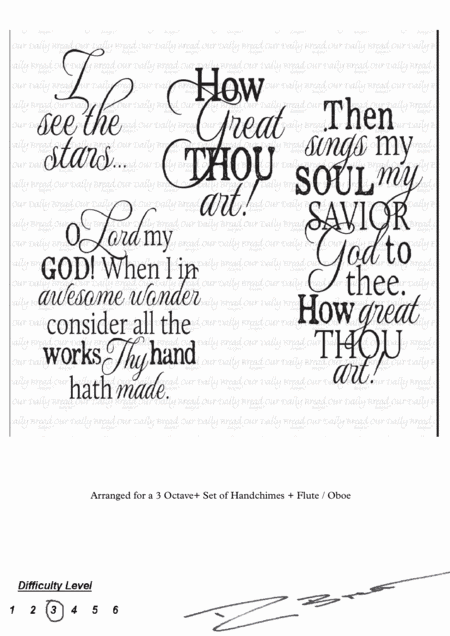 I
see the
stars...
How
Great
THOU
art!
O Lord my
GOD! When I in
awesome wonder
consider all the
works Thy hand
hath made.
Then
sings my
SOUL my
SAVIOR
God to
thee.
How great
THOU
art!
Arranged for a 3 Octave+ Set of Handchimes + Flute / Oboe
Difficulty Level
1 2 3 4 5 6